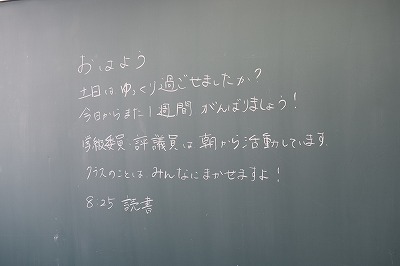 おはよう
土日はゆっくり過ごせましたか?
今日からまた1週間 がんばりましょう!
学級委員・評議員は朝から活動しています.
クラスのことは みんなにまかせますよ!
8:25 読書